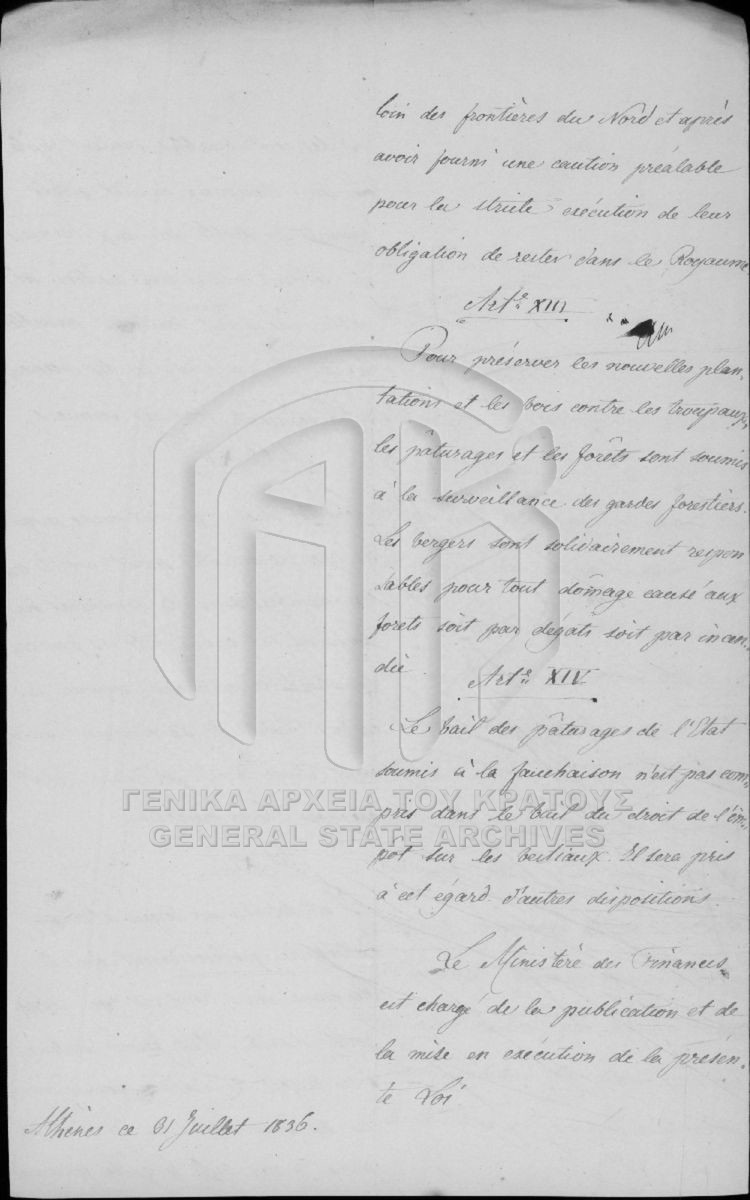 loin des frontières du Nord et après
avoir fourni une caution préalable
pour la stricte exécution de leur
obligation de rester dans le Royaume
Art.e XIII
Pour préserver les nouvelles plan-
tations et les bois contre les troupaux,
les pâturages et les forêts sont soumis
à la surveillance des gardes forestiers.
Les bergers sont solidairement respon
sables pour tout dômage causé aux
forets soit par dégâts soit par incen-
die.
Art.e XIV
Le bail des pâturages de l'Etat
soumis à la fauchaison n'est pas com-
pris dans le bail du droit de l'im-
pôt sur les bestiaux. Il sera pris
à cet égard d'autres dispositions.
ΓΕΝΙΚΑ ΑΡΧΕΙΑ ΤΟΥ ΚΡΑΤΟΥΣ
GENERAL STATE ARCHIVES
Le Ministère des Finances
est chargé de la publication et de
la mise en exécution de la présen-
te Loi
Athènes ce 31 Juillet 1836.